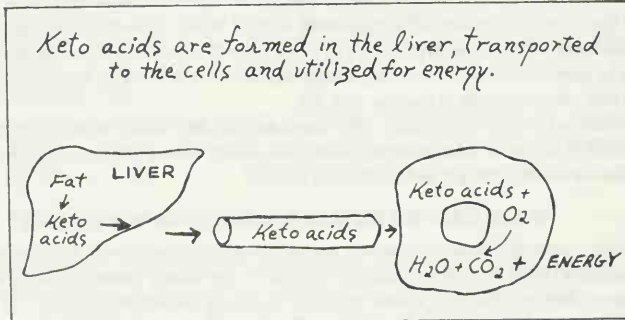 Keto acids are formed in the liver, transported
to the cells and utilized for energy.
LIVER
Fat
Keto
acids
Keto acids
Keto acids +
O₂
H₂O + CO₂ + ENERGY